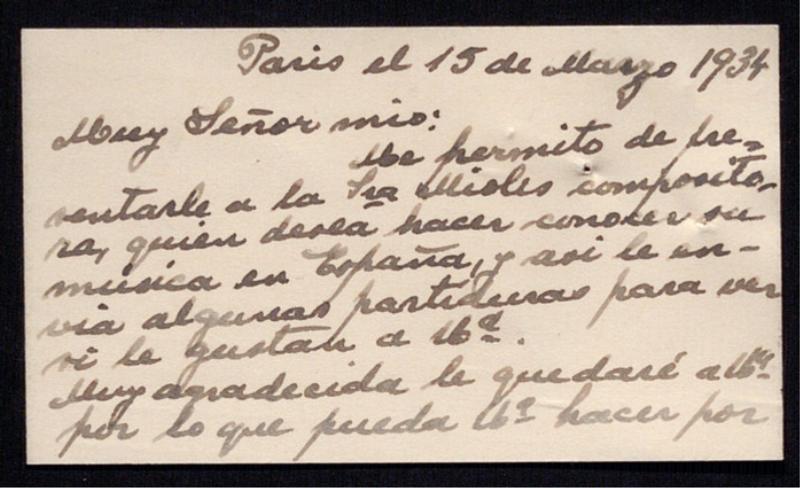 Paris el 15 de Marzo 1934
Muy Señor mio:
Me permito de pre-
sentarle a la Sra Mioles composito-
ra, quien desea hacer conocer su
música en España, y asi le en-
via algunas partiduras para ver
si le gustan a Ud.
Muy agradecida le quedaré a Ud.
por lo que pueda Ud hacer por